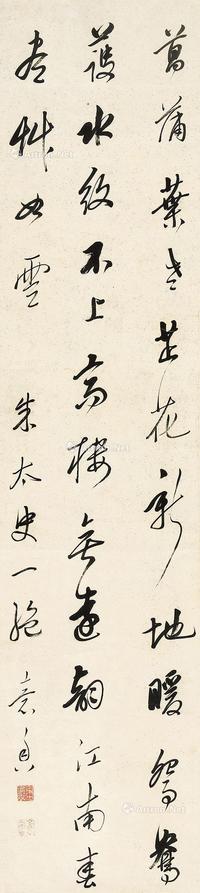 菖蒲葉老芷花新地暖鴛鴦
護水紋不上高樓無遠韻江南春
盡艸如雲 朱太史一絕